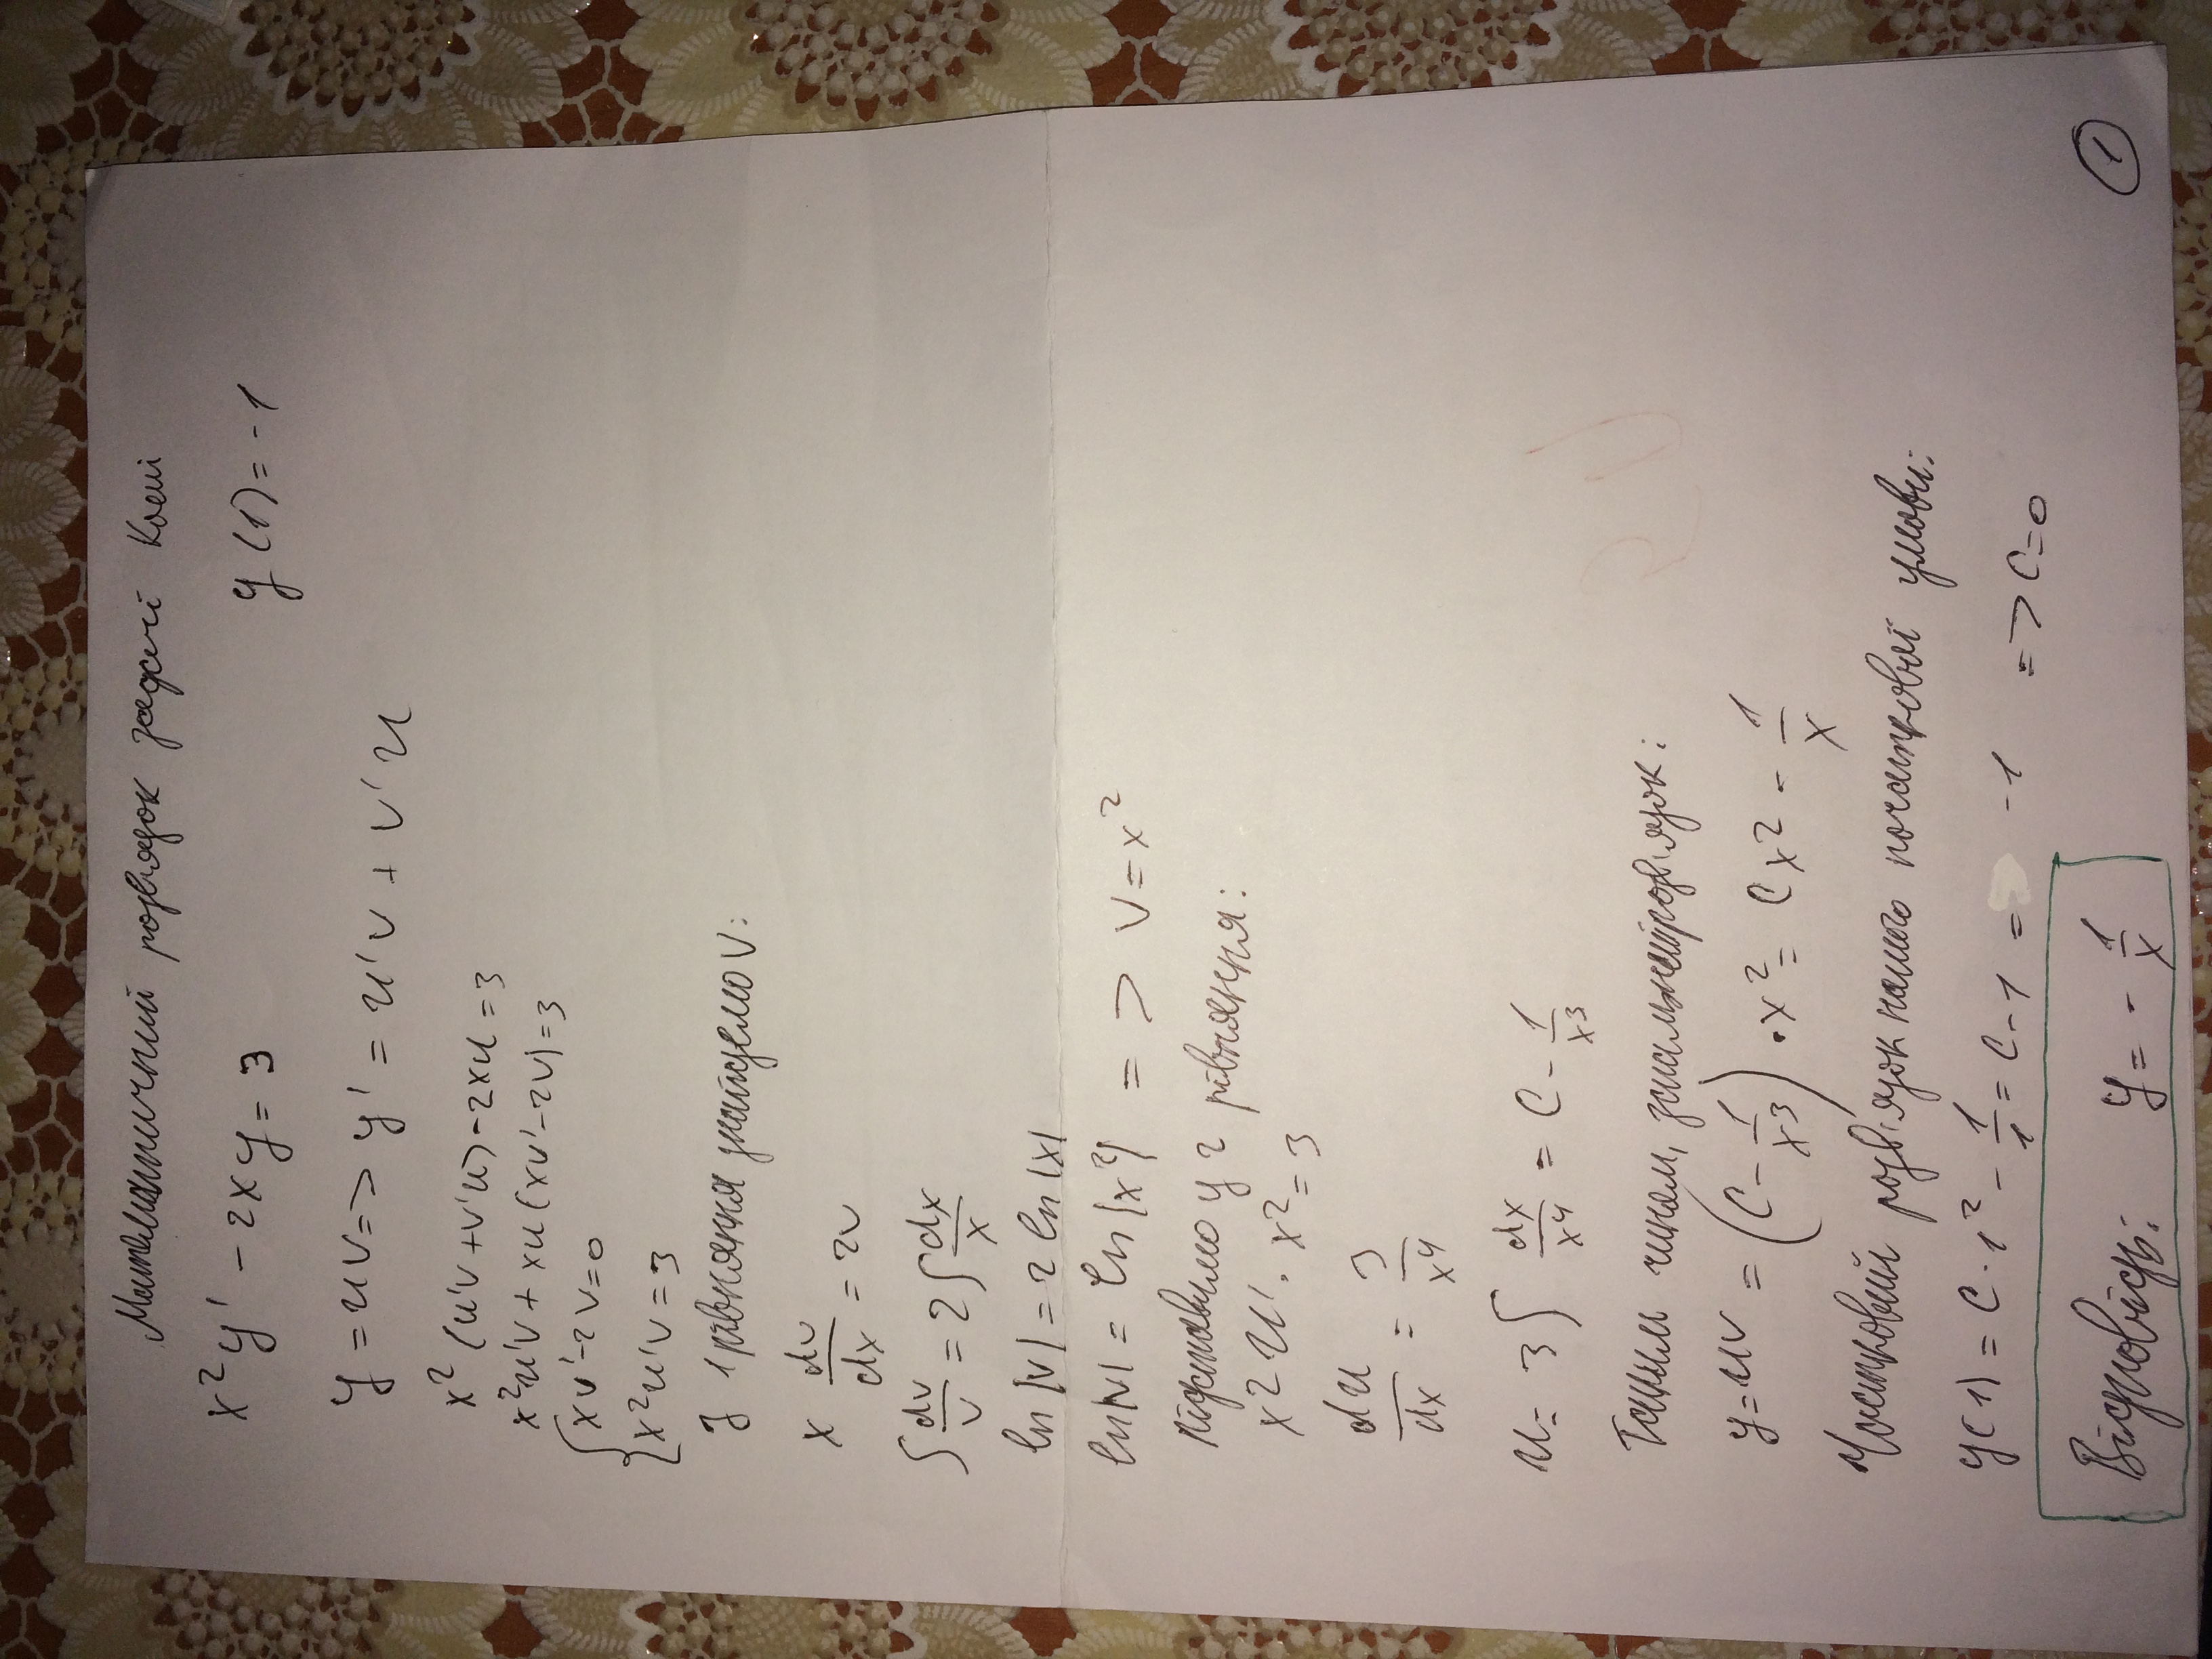 Математичний розв'язок задачі Коші
x²y' - 2xy = 3 y(1) = -1
y = uv => y' = u'v + v'u
x² (u'v + v'u) - 2xu = 3
x²u'v + xu(xv' - 2v) = 3
{ xv' - 2v = 0
x²u'v = 3
З 1 рівняння знайдемо v:
x dv/dx = 2v
∫ dv/v = 2∫ dx/x
ln|v| = 2 ln|x|
ln|v| = ln|x²| => v = x²
Підставимо у 2 рівняння:
x²u' · x² = 3
du/dx = 3/x⁴
u = 3∫ dx/x⁴ = C - 1/x³
Таким чином, загальний розв'язок:
y = uv = (C - 1/x³) · x² = Cx² - 1/x
Частковий розв'язок нашого початкової умови:
y(1) = C · 1² - 1/1 = C - 1 = -1 => C = 0
Відповідь: y = - 1/x
1